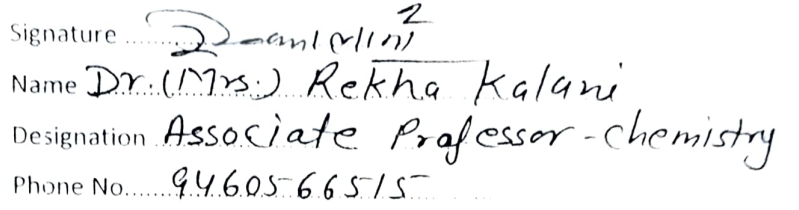 Signature
Name Dr. (Mrs.) Rekha Kalani
Designation Associate Professor - chemistry
Phone No...... 9460566515